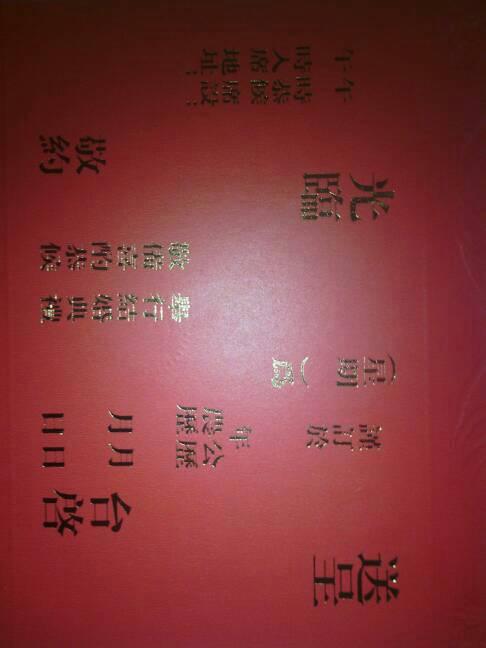 送呈 台啓
謹訂於 公曆 年 月 日
農曆 年 月 日
(星期 )為
舉行結婚典禮
敬備喜酌恭候
光臨
敬約
午 時恭候 席設:
午 時入席 地址: